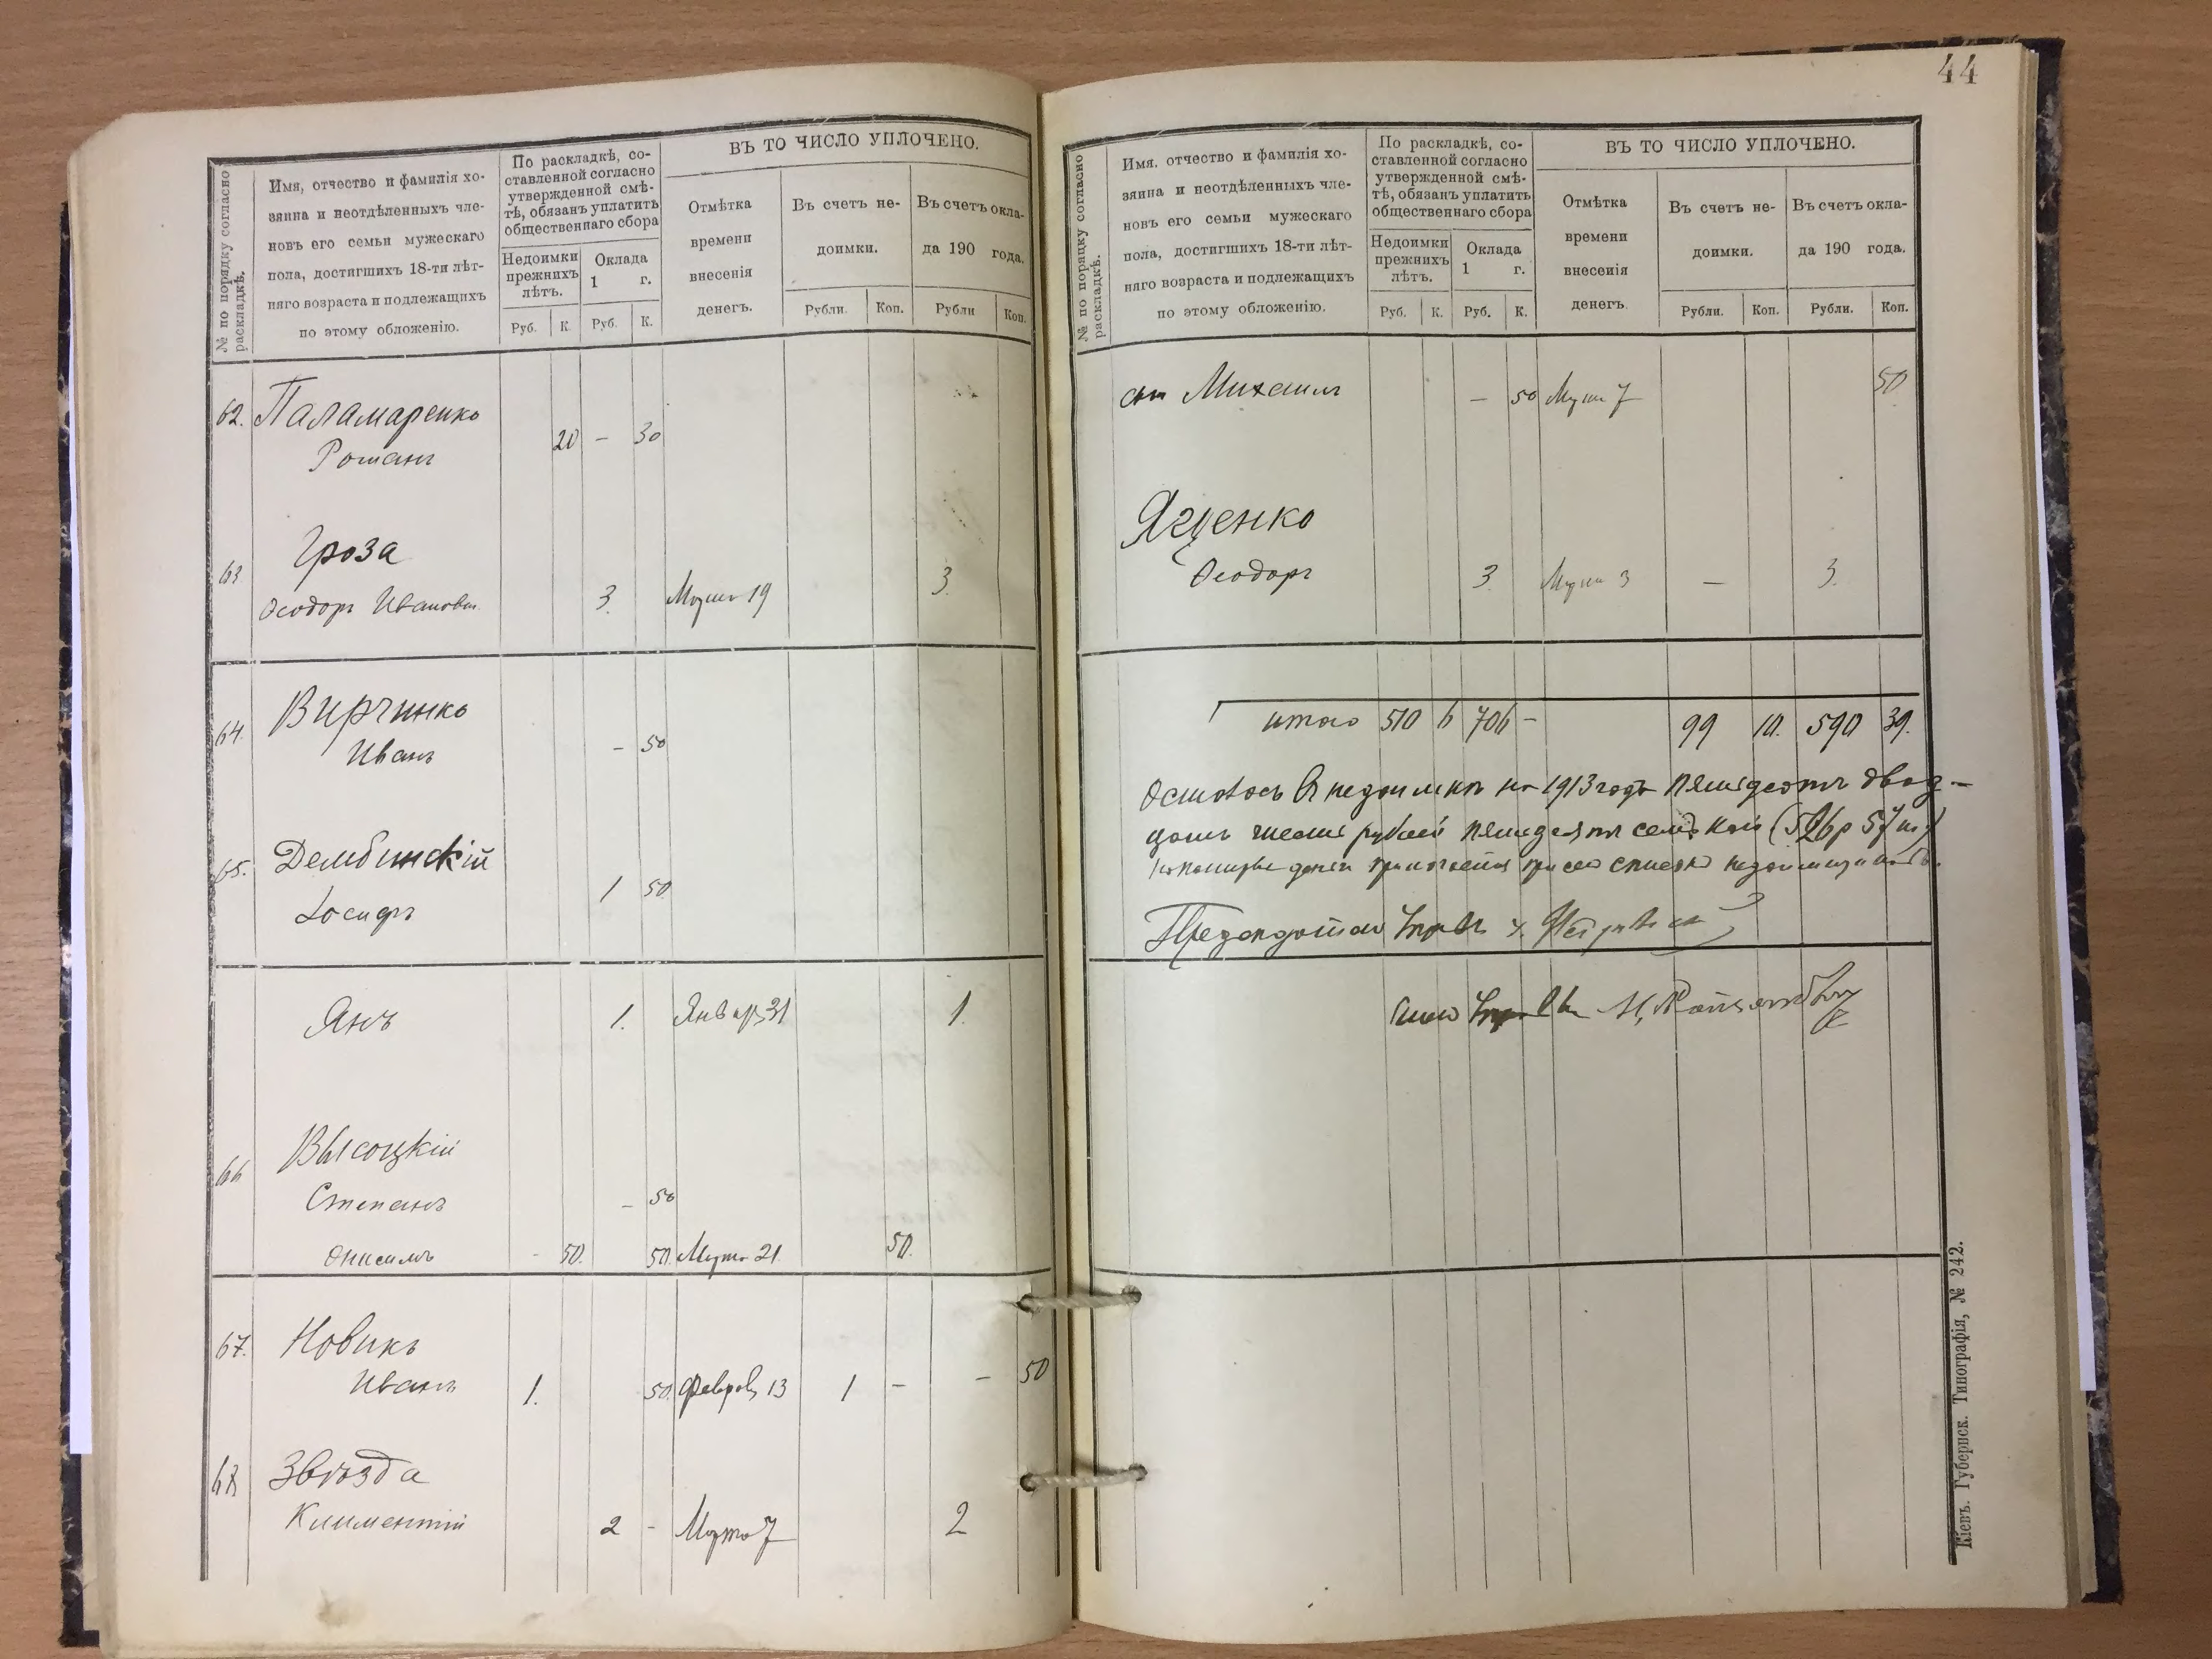 44
№ по порядку согласно раскладкѣ.
Имя, отчество и фамилія хо-
зяина и неотдѣленныхъ чле-
новъ его семьи мужескаго
пола, достигшихъ 18-ти лѣт-
няго возраста и подлежащихъ
по этому обложенію.
По раскладкѣ, со-
ставленной согласно
утвержденной смѣ-
тѣ, обязанъ уплатить
общественнаго сбора
Недоимки
прежнихъ
лѣтъ.
Оклада
1 г.
Руб. К. Руб. К.
ВЪ ТО ЧИСЛО УПЛОЧЕНО.
Отмѣтка
времени
внесенія
денегъ.
Въ счетъ не-
доимки.
Въ счетъ окла-
да 190 года.
Рубли. Коп. Рубли Коп.
62. Паламаренко
Романъ 20 — 30
63 Гроза
Ѳеодоръ Ивановъ 3. Марта 19 3.
64. Вирчинко
Иванъ — 50
65. Дембинскій
Іосифъ 1 50
Янъ 1. Январ 31 1.
66 Высоцкій
Степанъ — 50
Онисимъ - 50. 50. Марта 21 50.
67. Новикъ
Иванъ 1. 50. Февраль 13 1 — — 50
68 Звѣзда
Климентій 2 - Марта 7 2
№ по порядку согласно раскладкѣ.
Имя. отчество и фамилія хо-
зяина и неотдѣленныхъ чле-
новъ его семьи мужескаго
пола, достигшихъ 18-ти лѣт-
няго возраста и подлежащихъ
по этому обложенію.
По раскладкѣ, со-
ставленной согласно
утвержденной смѣ-
тѣ, обязанъ уплатить
общественнаго сбора
Недоимки
прежнихъ
лѣтъ.
Оклада
1 г.
Руб. К. Руб. К.
ВЪ ТО ЧИСЛО УПЛОЧЕНО.
Отмѣтка
времени
внесенія
денегъ.
Въ счетъ не-
доимки.
Въ счетъ окла-
да 190 года.
Рубли. Коп. Рубли. Коп.
Михаилъ — 50 Марта 7 50
Ященко
Ѳеодоръ 3. Марта 3 — 3.
итого 510 6 706 — 99 10. 590 39.
Осталось въ недоимкѣ на 1913 годъ пятьсотъ двад-
цать шесть рублей пятьдесятъ семь коп (526 р 57 к)
при семъ списокъ
Предсѣдатель
Кіевъ. Губернск. Типографія, № 242.